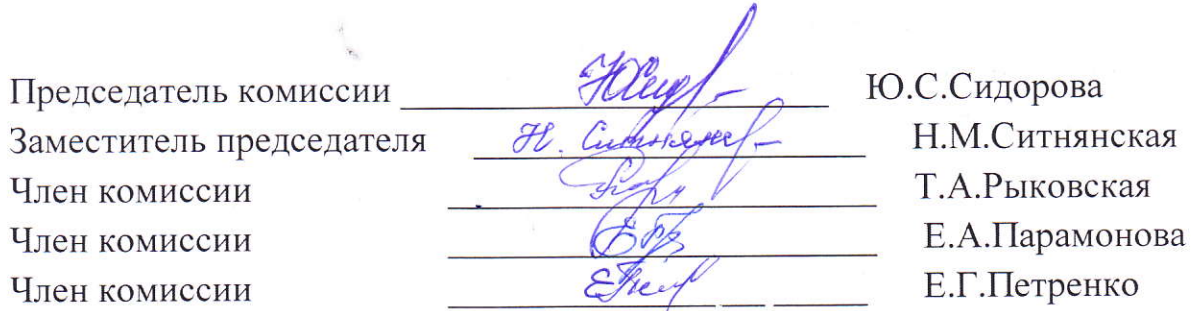 Председатель комиссии Ю.С.Сидорова
Заместитель председателя Н.М.Ситнянская
Член комиссии Т.А.Рыковская
Член комиссии Е.А.Парамонова
Член комиссии Е.Г.Петренко